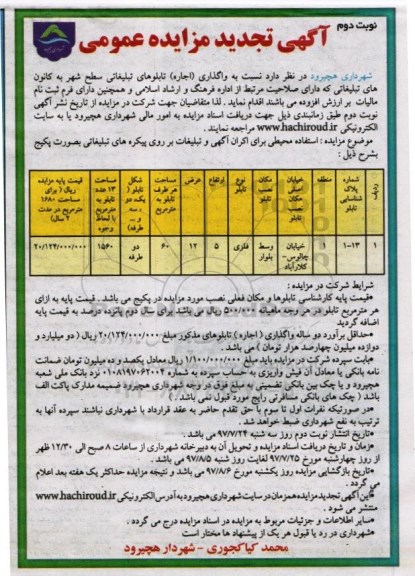 نوبت دوم
آگهی تجدید مزایده عمومی
شهرداری هچیرود در نظر دارد نسبت به واگذاری (اجاره) تابلوهای تبلیغاتی سطح شهر به کانون
های تبلیغاتی که دارای صلاحیت مرتبط از اداره فرهنگ و ارشاد اسلامی و همچنین دارای فرم ثبت نام
مالیات بر ارزش افزوده می باشند اقدام نماید . لذا متقاضیان جهت شرکت در مزایده از تاریخ نشر آگهی
نوبت دوم طبق زمانبندی ذیل جهت دریافت اسناد مزایده به امور مالی شهرداری هچیرود یا به سایت
الکترونیکی www.hachiroud.ir مراجعه نمایند .
موضوع مزایده : استفاده محیطی برای اکران آگهی و تبلیغات بر روی پیکره های تبلیغاتی بصورت پکیج
بشرح ذیل :
ردیف | شماره پلاک شناسایی تابلو | منطقه | خیابان اصلی مکان نصب تابلو | مکان نصب تابلو | نوع تابلو | ارتفاع | عرض | مساحت هر طرف تابلو به مترمربع | شکل تابلو ( یک، دو، سه و ... طرفه) | مساحت ۱۳ عدد تابلو به مترمربع با لحاظ وجوه | قیمت پایه مزایده ریال ( برای مساحت ۱۶۸۰ مترمربع در مدت ۲ سال)
۱ | ۱-۱۳ | ۱ | خیابان چالوس- کلارآباد | وسط بلوار | فلزی | ۵ | ۱۲ | ۶۰ | دو طرفه | ۱۵۶۰ | ۲۰/۱۲۴/۰۰۰/۰۰۰
شرایط شرکت در مزایده :
*قیمت پایه کارشناسی تابلوها و مکان فعلی نصب مورد مزایده در پکیج می باشد . قیمت پایه به ازای
هر مترمربع تابلو در هر وجه ماهیانه ۵۰۰/۰۰۰ ریال می باشد برای سال دوم پانزده درصد به قیمت پایه
اضافه گردید
*حداقل برآورد دو ساله واگذاری ( اجاره ) تابلوهای مذکور مبلغ ۲۰/۱۲۴/۰۰۰/۰۰۰ ریال ( دو میلیارد و
دوازده میلیون چهارصد هزار تومان ) می باشد.
*بابت سپرده شرکت در مزایده باید مبلغ ۱/۱۰۰/۰۰۰/۰۰۰ ریال معادل یکصد و ده میلیون تومان ضمانت
نامه بانکی یا معادل آن فیش واریزی به حساب سپرده به شماره ۰۱۰۸۱۹۷۰۶۲۰۰۴ نزد بانک ملی شعبه
هچیرود و یا چک بین بانکی تضمینی به مبلغ فوق در وجه شهرداری هچیرود ضمیمه مدارک پاکت الف
باشد ( چک های بانکی مسافرتی رایج مورد قبول نمی باشد . )
*در صورتیکه نفرات اول تا سوم با حق تقدم حاضر به عقد قرارداد با شهرداری نباشند سپرده آنها به
ترتیب به نفع شهرداری ضبط خواهد شد .
*تاریخ انتشار نوبت دوم روز سه شنبه ۹۷/۷/۲۴ می باشد .
*زمان و تاریخ دریافت اسناد مزایده و تحویل آن به دبیرخانه شهرداری از ساعات ۸ صبح الی ۱۲/۳۰ ظهر
از روز چهارشنبه مورخ ۹۷/۷/۲۵ لغایت روز شنبه ۹۷/۸/۵ می باشد .
*تاریخ بازگشایی مزایده روز یکشنبه مورخ ۹۷/۸/۶ می باشد و نتیجه مزایده حداکثر یک هفته بعد اعلام
می گردد .
*این آگهی تجدید مزایده همزمان در سایت شهرداری هچیرود به آدرس الکترونیکی www.hachiroud.ir
منتشر می شود .
*سایر اطلاعات و جزئیات مربوط به مزایده در اسناد مزایده درج می گردد .
*شهرداری در رد یا قبول هر یک از پیشنهادها مختار است
محمد کیاکجوری - شهردار هچیرود